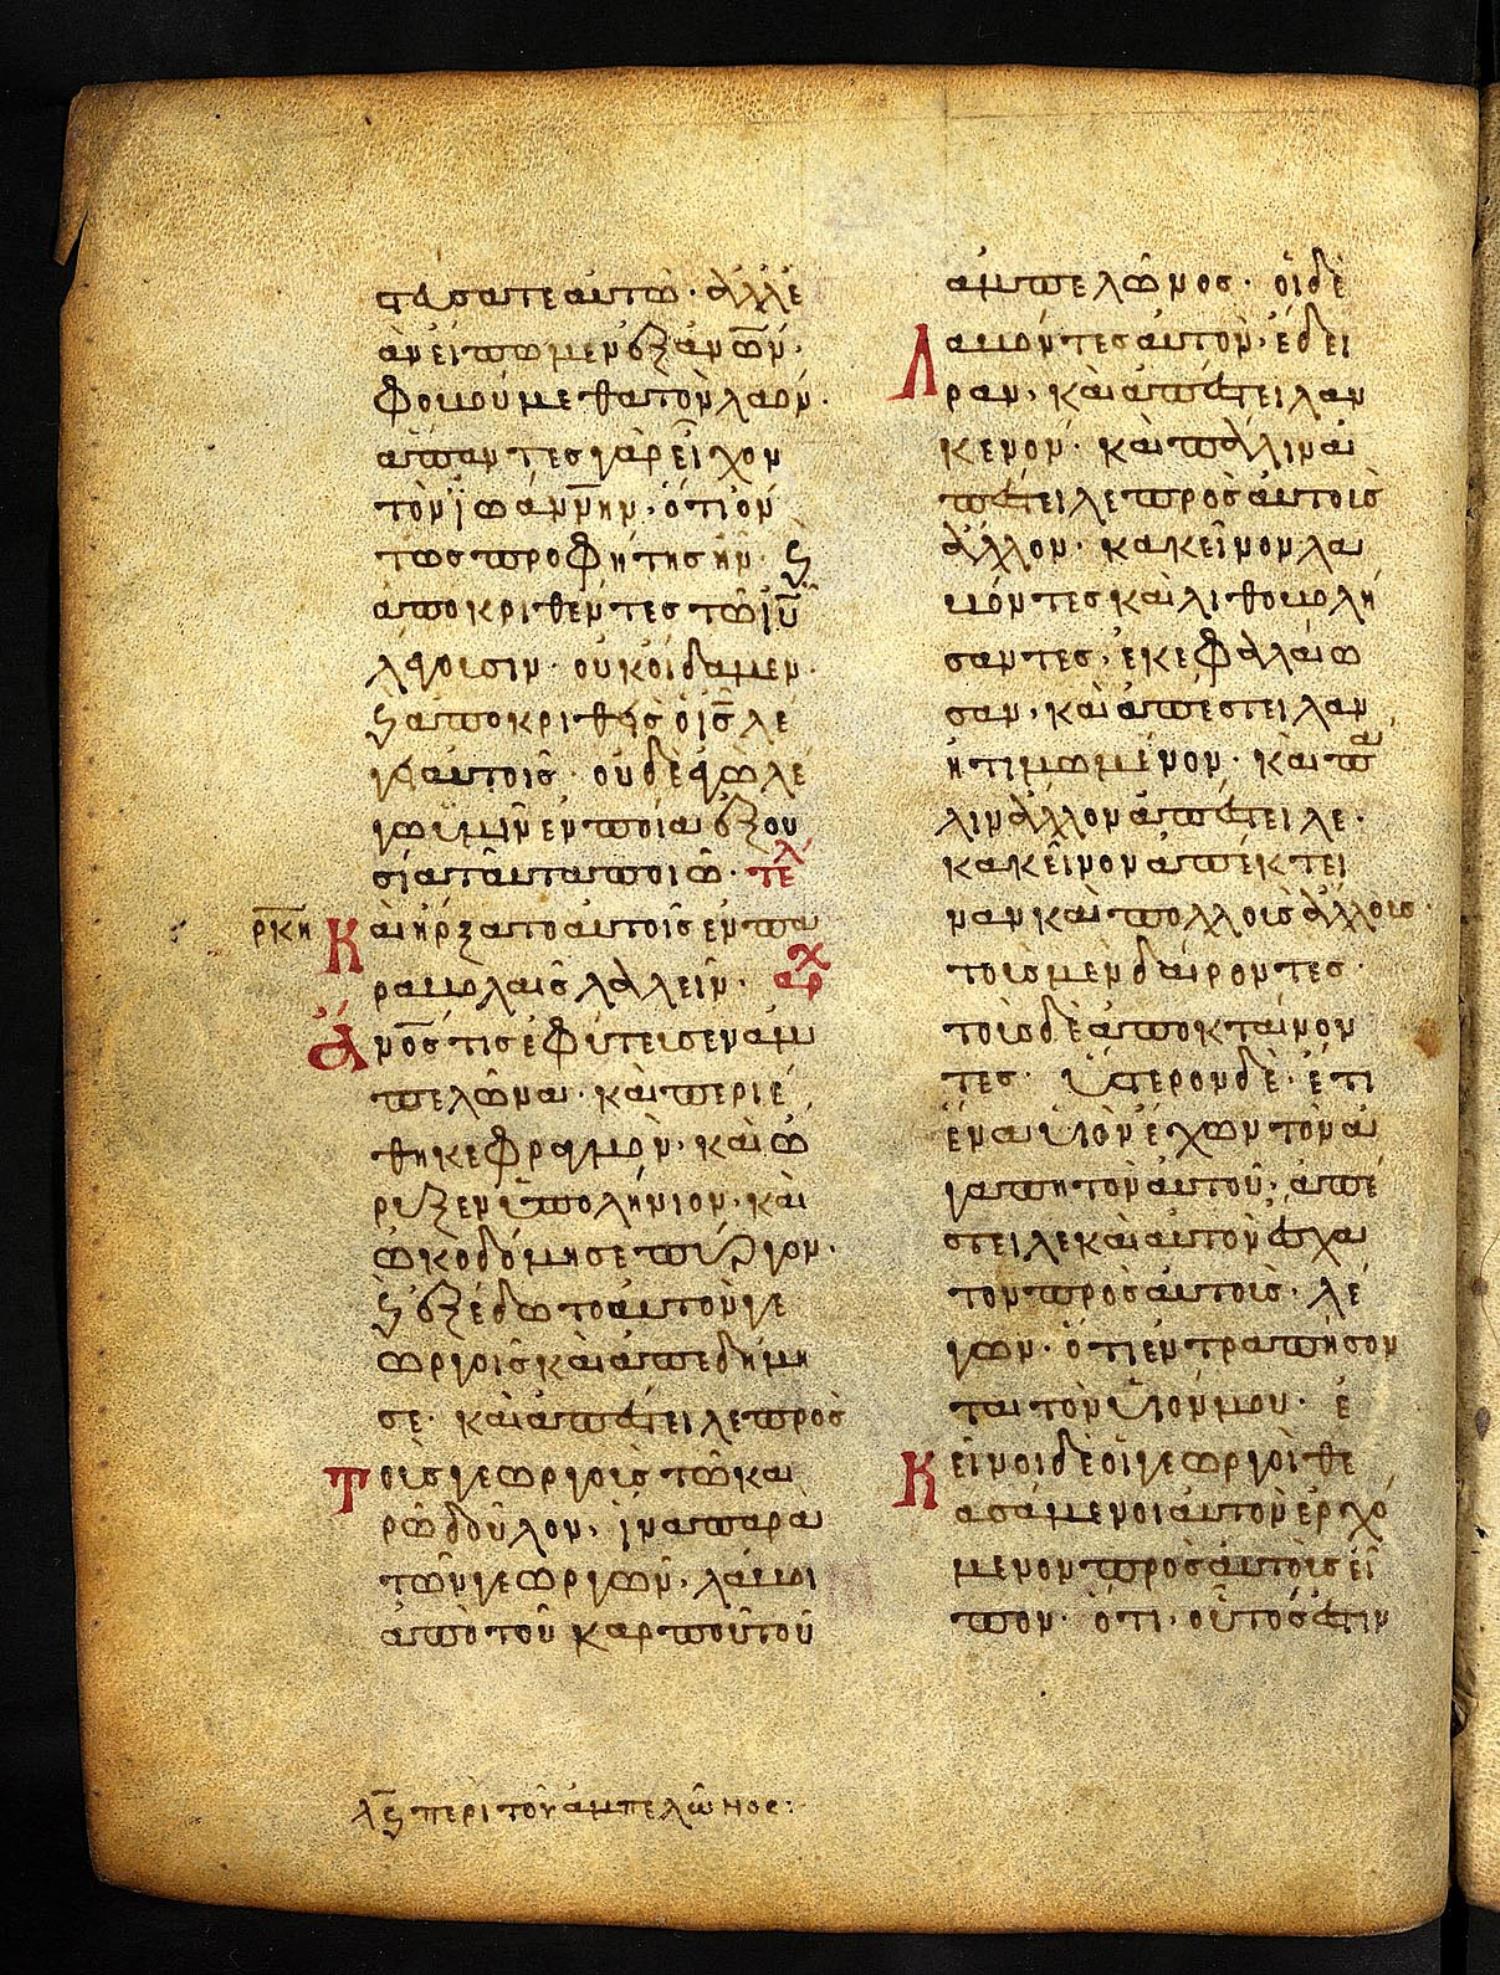 στάσατε αὐτῶ· ἀλλ' ἐ
ἀν εἴπωμεν ἐξ ἀν̅ω̅ν·
φοβούμεθα τὸν λαόν·
ἅπαντες γὰρ εἶχον
τὸν ἰωάννην· ὅτι ὄν
τως προφήτης ἦν· ϗ
ἀποκριθέντες τῶ ι̅υ̅
λέγουσιν· οὐκ οἴδαμεν·
ϗ ἀποκριθεὶς ὁ ι̅ς̅ λέ
γει αὐτοῖς· οὐδὲ ἐγὼ λέ
γω ὑμῖν ἐν ποία ἐξου
σία ταῦτα ποιῶ· τελ
ρκη Καὶ ἤρξατο αὐτοῖς ἐν πα
ραβολαῖς λαλεῖν· αρχ
Ἄν̅ο̅ς̅ τις ἐφύτευσεν ἀμ
πελῶνα· καὶ περιέ
θηκε φραγμὸν· καὶ ὤ
ρυξεν ὑπολήνιον· καὶ
ὠκοδόμησε πύργον·
ϗ ἐξέδωτο αὐτὸν γε
ωργοῖς καὶ ἀπεδήμη
σε· καὶ ἀπέστειλε πρὸς
Τοὺς γεωργοὺς τῶ και
ρῶ δοῦλον· ἵνα παρὰ
τῶν γεωργῶν· λάβη
ἀπὸ τοῦ καρποῦ τοῦ
ἀμπελῶνος· οἱ δὲ
Λαβόντες αὐτὸν· ἔδει
ραν· καὶ ἀπέστειλαν
κενόν· καὶ πάλιν ἀ
πέστειλε πρὸς αὐτοὺς
ἄλλον· κακεῖνον λα
βόντες καὶ λιθοβολή
σαντες· ἐκεφαλαίω
σαν· καὶ ἀπέστειλαν
ἠτιμωμένον· καὶ πά
λιν ἄλλον ἀπέστειλε·
κακεῖνον ἀπέκτει
ναν καὶ πολλοὺς ἄλλους·
τοὺς μὲν δαίροντες·
τοὺς δὲ ἀποκταίνον
τες· ὕστερον δὲ· ἔτι
ἕνα υἱὸν ἔχων τὸν ἀ
γαπητὸν αὐτοῦ· ἀπέ
στειλε καὶ αὐτὸν ἔσχα
τον πρὸς αὐτοὺς· λέ
γων· ὅτι ἐντραπήσον
ται τὸν υἱόν μου· ἐ
Κεῖνοι δὲ οἱ γεωργοὶ θε
ασάμενοι αὐτὸν ἐρχό
μενον πρὸς αὐτοὺς εἶ
πον· ὅτι· οὗτός ἐστιν
λϛ περὶ τοῦ ἀμπελῶνος: